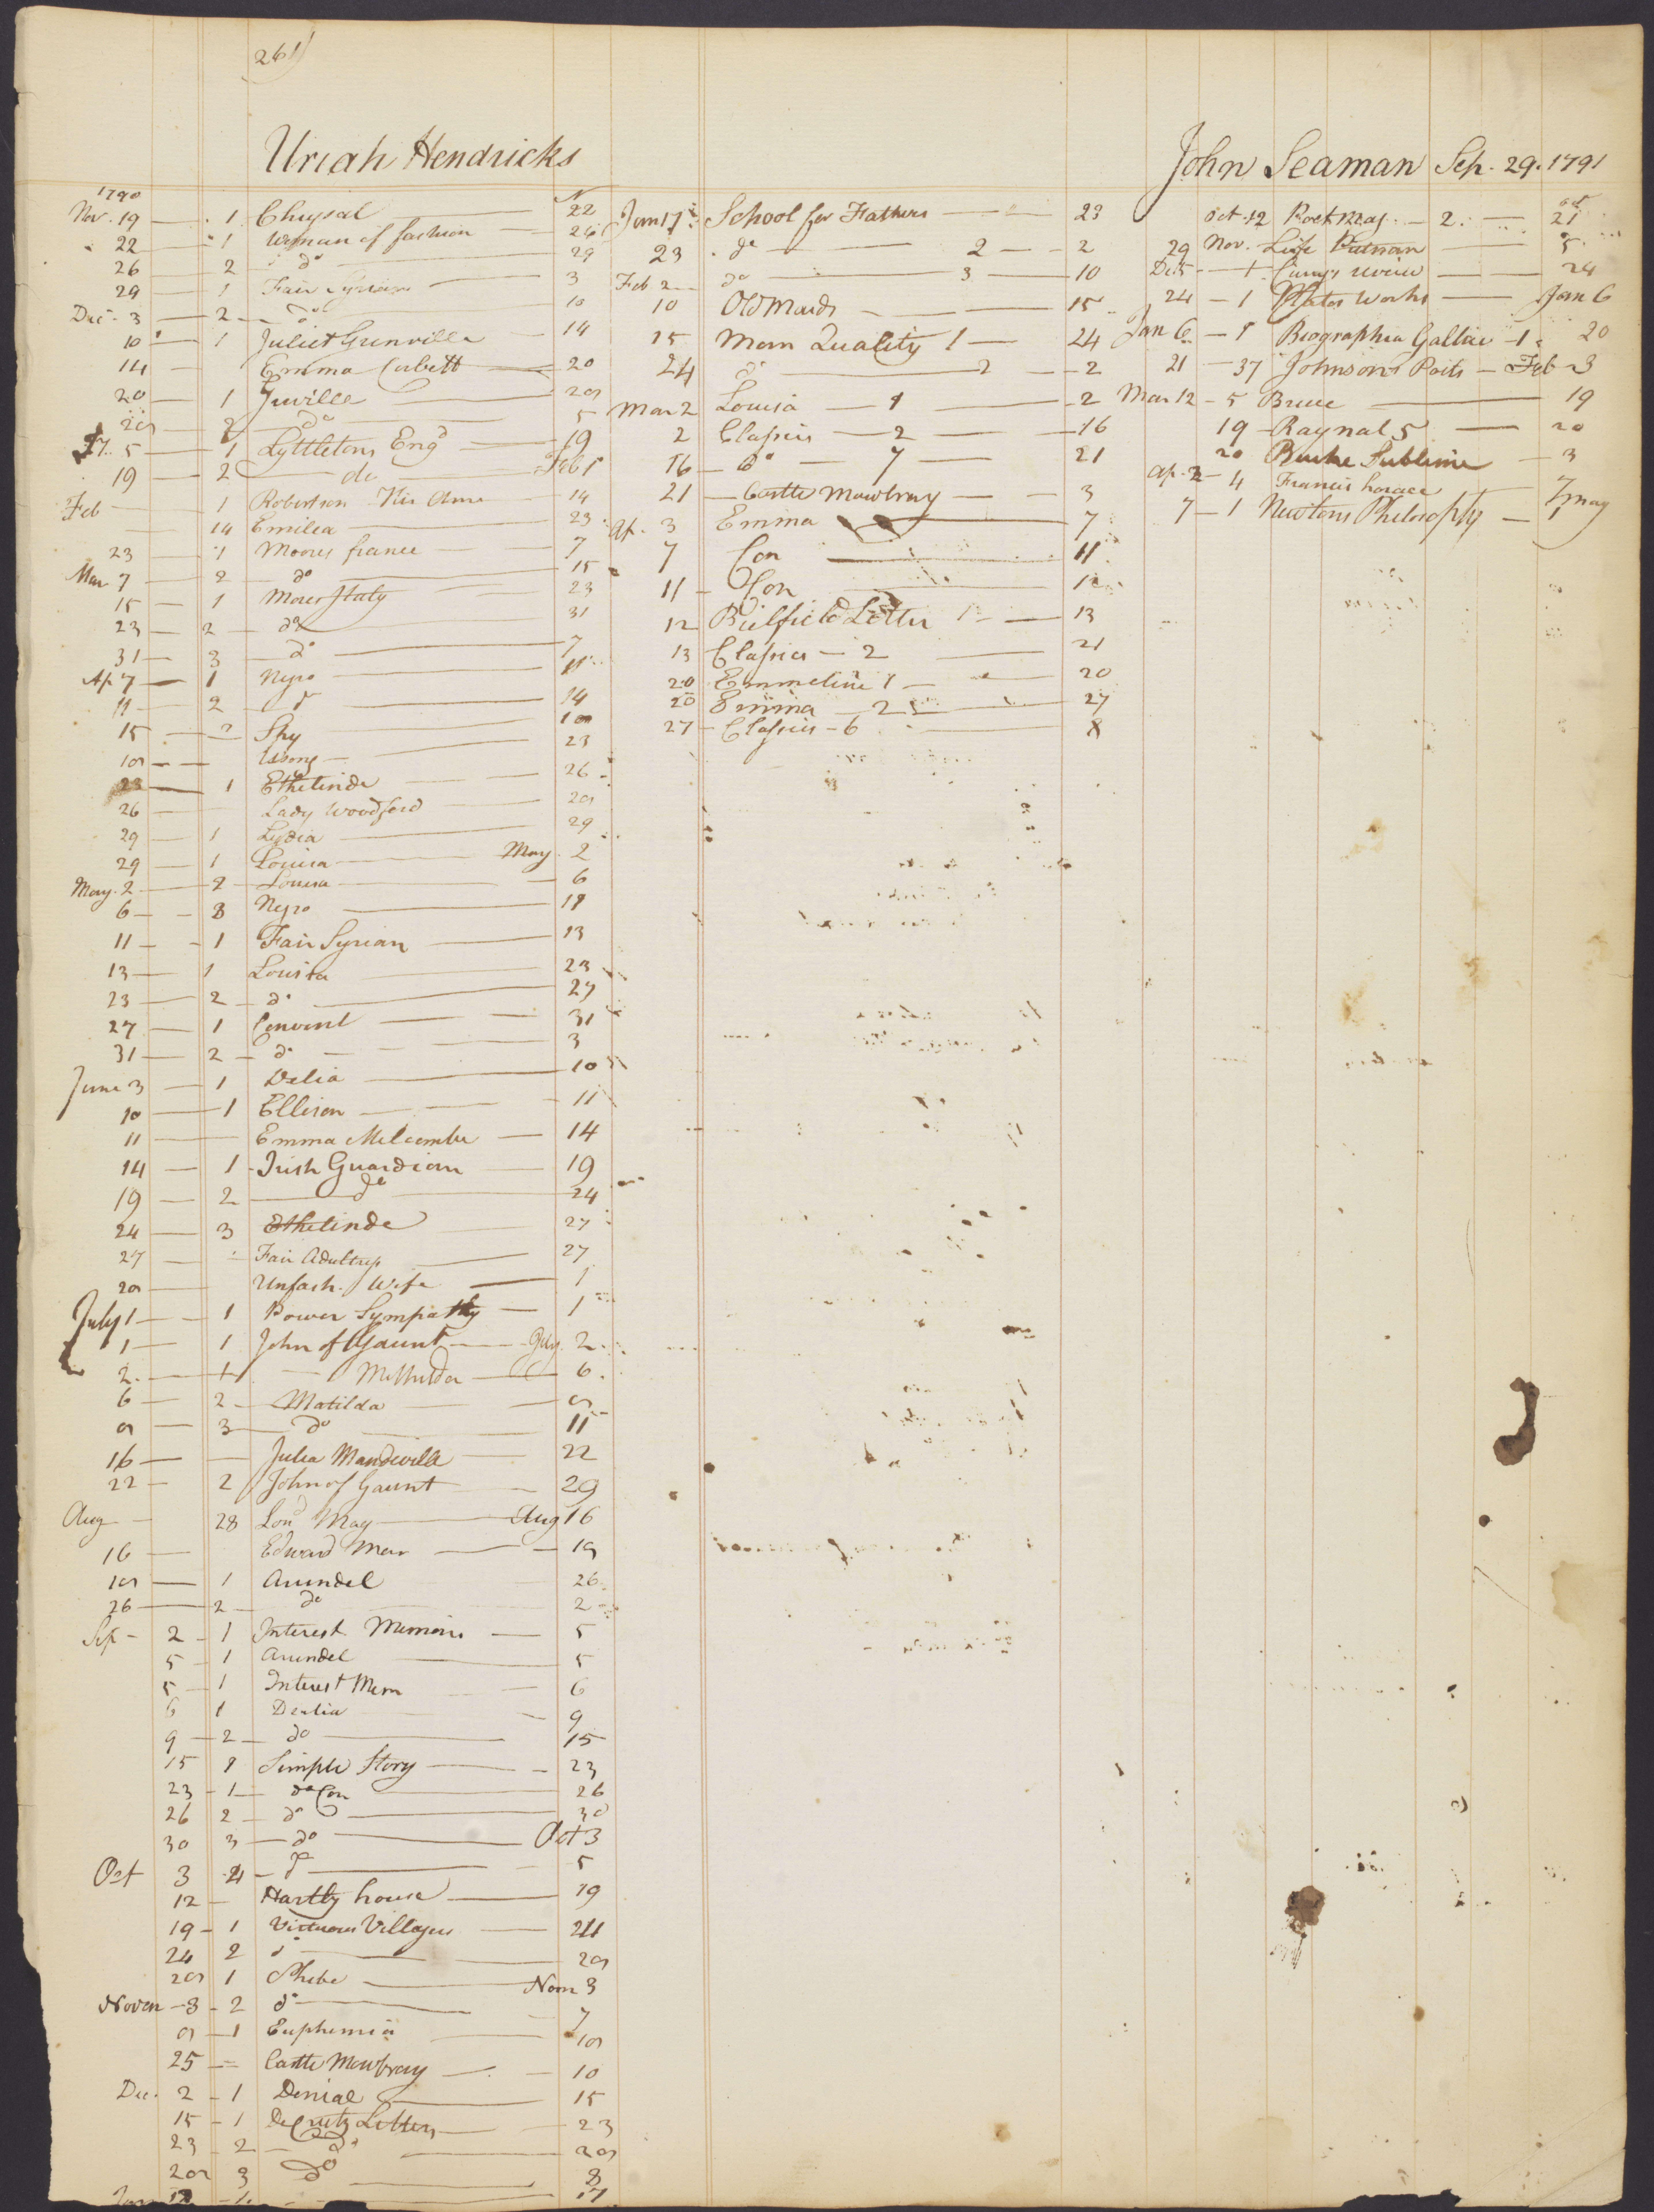 261
Uriah Hendricks
1790
Nov. 19 — 1 Chrysal — 22
22 — 1 Woman of fashion — 26
26 2 do — 29
29 1 Fair Syrian — 3
Dec. 3 — 2 — do — 10
10 — 1 Juliet Grenville — 14
14 — Emma Corbett — 20
20 — 1 Juville — 28
28 2 do — 5
5 — 1 Lyttletons Engd — 19
19 — 2 — do — Feb 1
Feb — 1 Robertson His Ame — 14
14 Emilia — 23
23 — 1 Moores france — 7
Mar 7 — 2 — do — 15
15 — 1 Mores Italy — 23
23 — 2 — do — 31
31 — 3 — do — 7
Ap 7 — 1 Negro — 11
11 — 2 — do — 14
15 — 2 Spy — 18
18 — — 23
23 — 1 Ethelinde — 26
26 — Lady Woodford — 28
29 — 1 Lydia — 29
29 — 1 Louisa — May 2
May. 2 — 2 — Louisa — 6
6 — 3 Negro — 11
11 — 1 Fair Syrian — 13
13 — 1 Louisa — 23
23 — 2 — do — 27
27 — 1 Convent — 31
31 — 2 — do — 3
June 3 — 1 Delia — 10
10 — 1 Ellison — 11
11 — Emma Melcombe — 14
14 — 1 Irish Guardian — 19
19 — 2 — do — 24
24 — 3 Ethelinde — 27
27 — Fair Adultress — 27
28 — Unfash. Wife — 1
July 1 — 1 Power Sympathy — 1
1 — 1 John of Gaunt — July 2
2 — 1 — Mathilda — 6
6 — 2 — Matilda — 8
8 — 3 — do — 11
16 — — Julia Mandeville — 22
22 — 2 John of Gaunt — 29
Aug — 28 Lond Mag — Aug 16
16 — Edward — 18
18 — 1 Arundel — 26
26 — 2 — do — 2
Sep — 2 — 1 Interest. Memoirs — 5
5 — 1 Arundel — 5
5 — 1 Interest Mem — 6
6 1 Dealia — 9
9 — 2 — do — 15
15 1 Simple Story — 23
23 — 1 — do Con — 26
26 2 — do — 30
30 3 — do — Oct 3
Oct 3 4 — do — 5
12 — Hartly house — 19
19 — 1 Virtuous Villagers — 24
24 2 do — 28
28 1 Phebe — Novm 3
Novem — 3 — 2 do — 7
8 — 1 Euphemia — 18
25 — Castle Mowbray — 10
Dec. 2 — 1 Denial — 15
15 — 1 De Letters — 23
23 — 2 — do — 28
28 3 do — 8
Jan 17 School for Fathers — 23
23 . do — 2 — 2
Feb 2 — do — 3 — 10
10 Old Maids — 15
15 Mem Quality 1 — 24
24 do — 2 — 2
Mar 2 Louisa — 1 — 2
2 Classics — 2 — 16
16 — do — 7 — 21
21 — Castle Mowbray — 3
Ap. 3 Emma — 7
7 Con — 11
11 — Con — 12
12 Bielfield Letter 1 — 13
13 Classics — 2 — 21
20 Emmeline 1 — 20
20 Emma — 2 — 27
27 — Classics — 6 — 8
John Seaman Sep. 29. 1791
Oct. 12 Roct Mag. — 2. — 21
29 Nov. — Life Putnam — 5
Dec 5 — 1 — review — 24
24 — 1 Platos Works — Jan 6
Jan 6 — 1 Biographia Gallice — 1. 20
21 — 37 Johnsons Poits — Feb 3
Mar 12 — 5 Bruce — 19
19 — Raynal 5 — 20
20 Burke Sublime — 3
Ap. 2 — 4 Francis horace — 7
7 — 1 Newtons Philosophy — 1 may